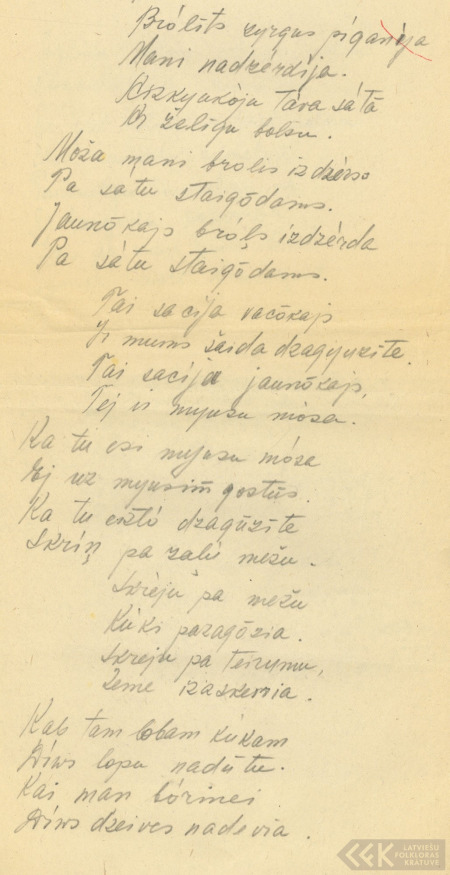 Brólits zyrgus piganija
Mani nadzérdija.
Aizkyukòju tāva sātā
Ar žēlīgu bolsu.
Moža mani brolis izdzérdo
Pa sātu staigōdams.
Jaunōkajs bróļs izdzérda
Pa sātu staigōdams.
Tai sacīja vacōkajs
Ir mums šaida dzagyuzite.
Tai sacīja jaunōkajs,
Tej ir myusu mòsa.
Ka tu esi myusu mósa
Ej uz myusim gostūs.
Ka tu ešti dzagūzite
Skriņ pa zalù mežu.
Skrèju pa mežu
Kùki pazagōzia.
Skreju pa teirumu,
Zeme izaskemia.
Kab tam lobam kùkam
Diws lopu nadūtu.
Kai man bòrinei
Diws dzeives nadevia.
LATVIEŠU
FOLKLORAS
KRĀTUVE